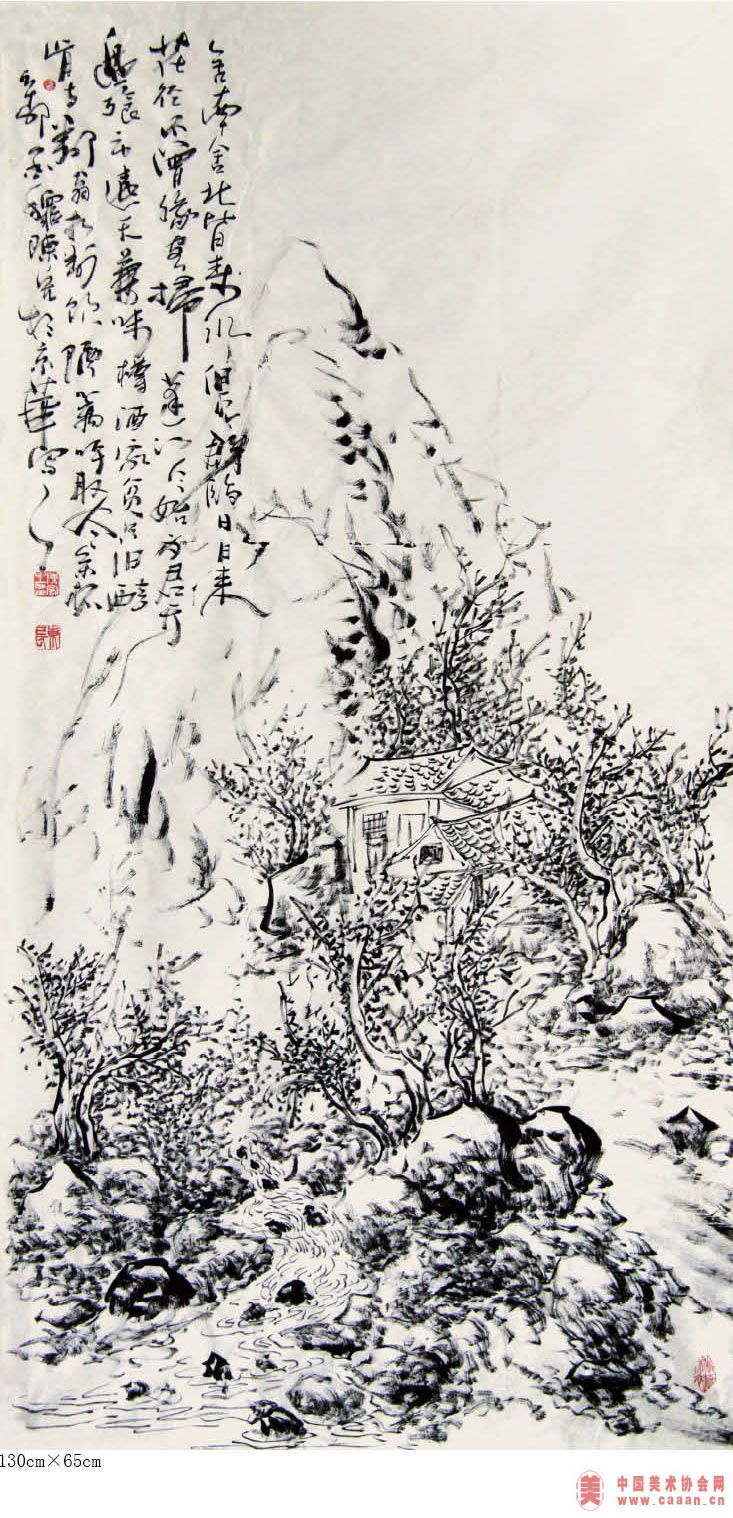 舍南舍北皆春水但見群鷗日日来
花径不曾緣客掃蓬門今始为君开
盤飧市遠无兼味樽酒家貧只旧醅
肯与鄰翁相對飲隔籬呼取尽余杯
於京華寫
130cm×65cm
美 中国美术协会网
www.caaan.cn